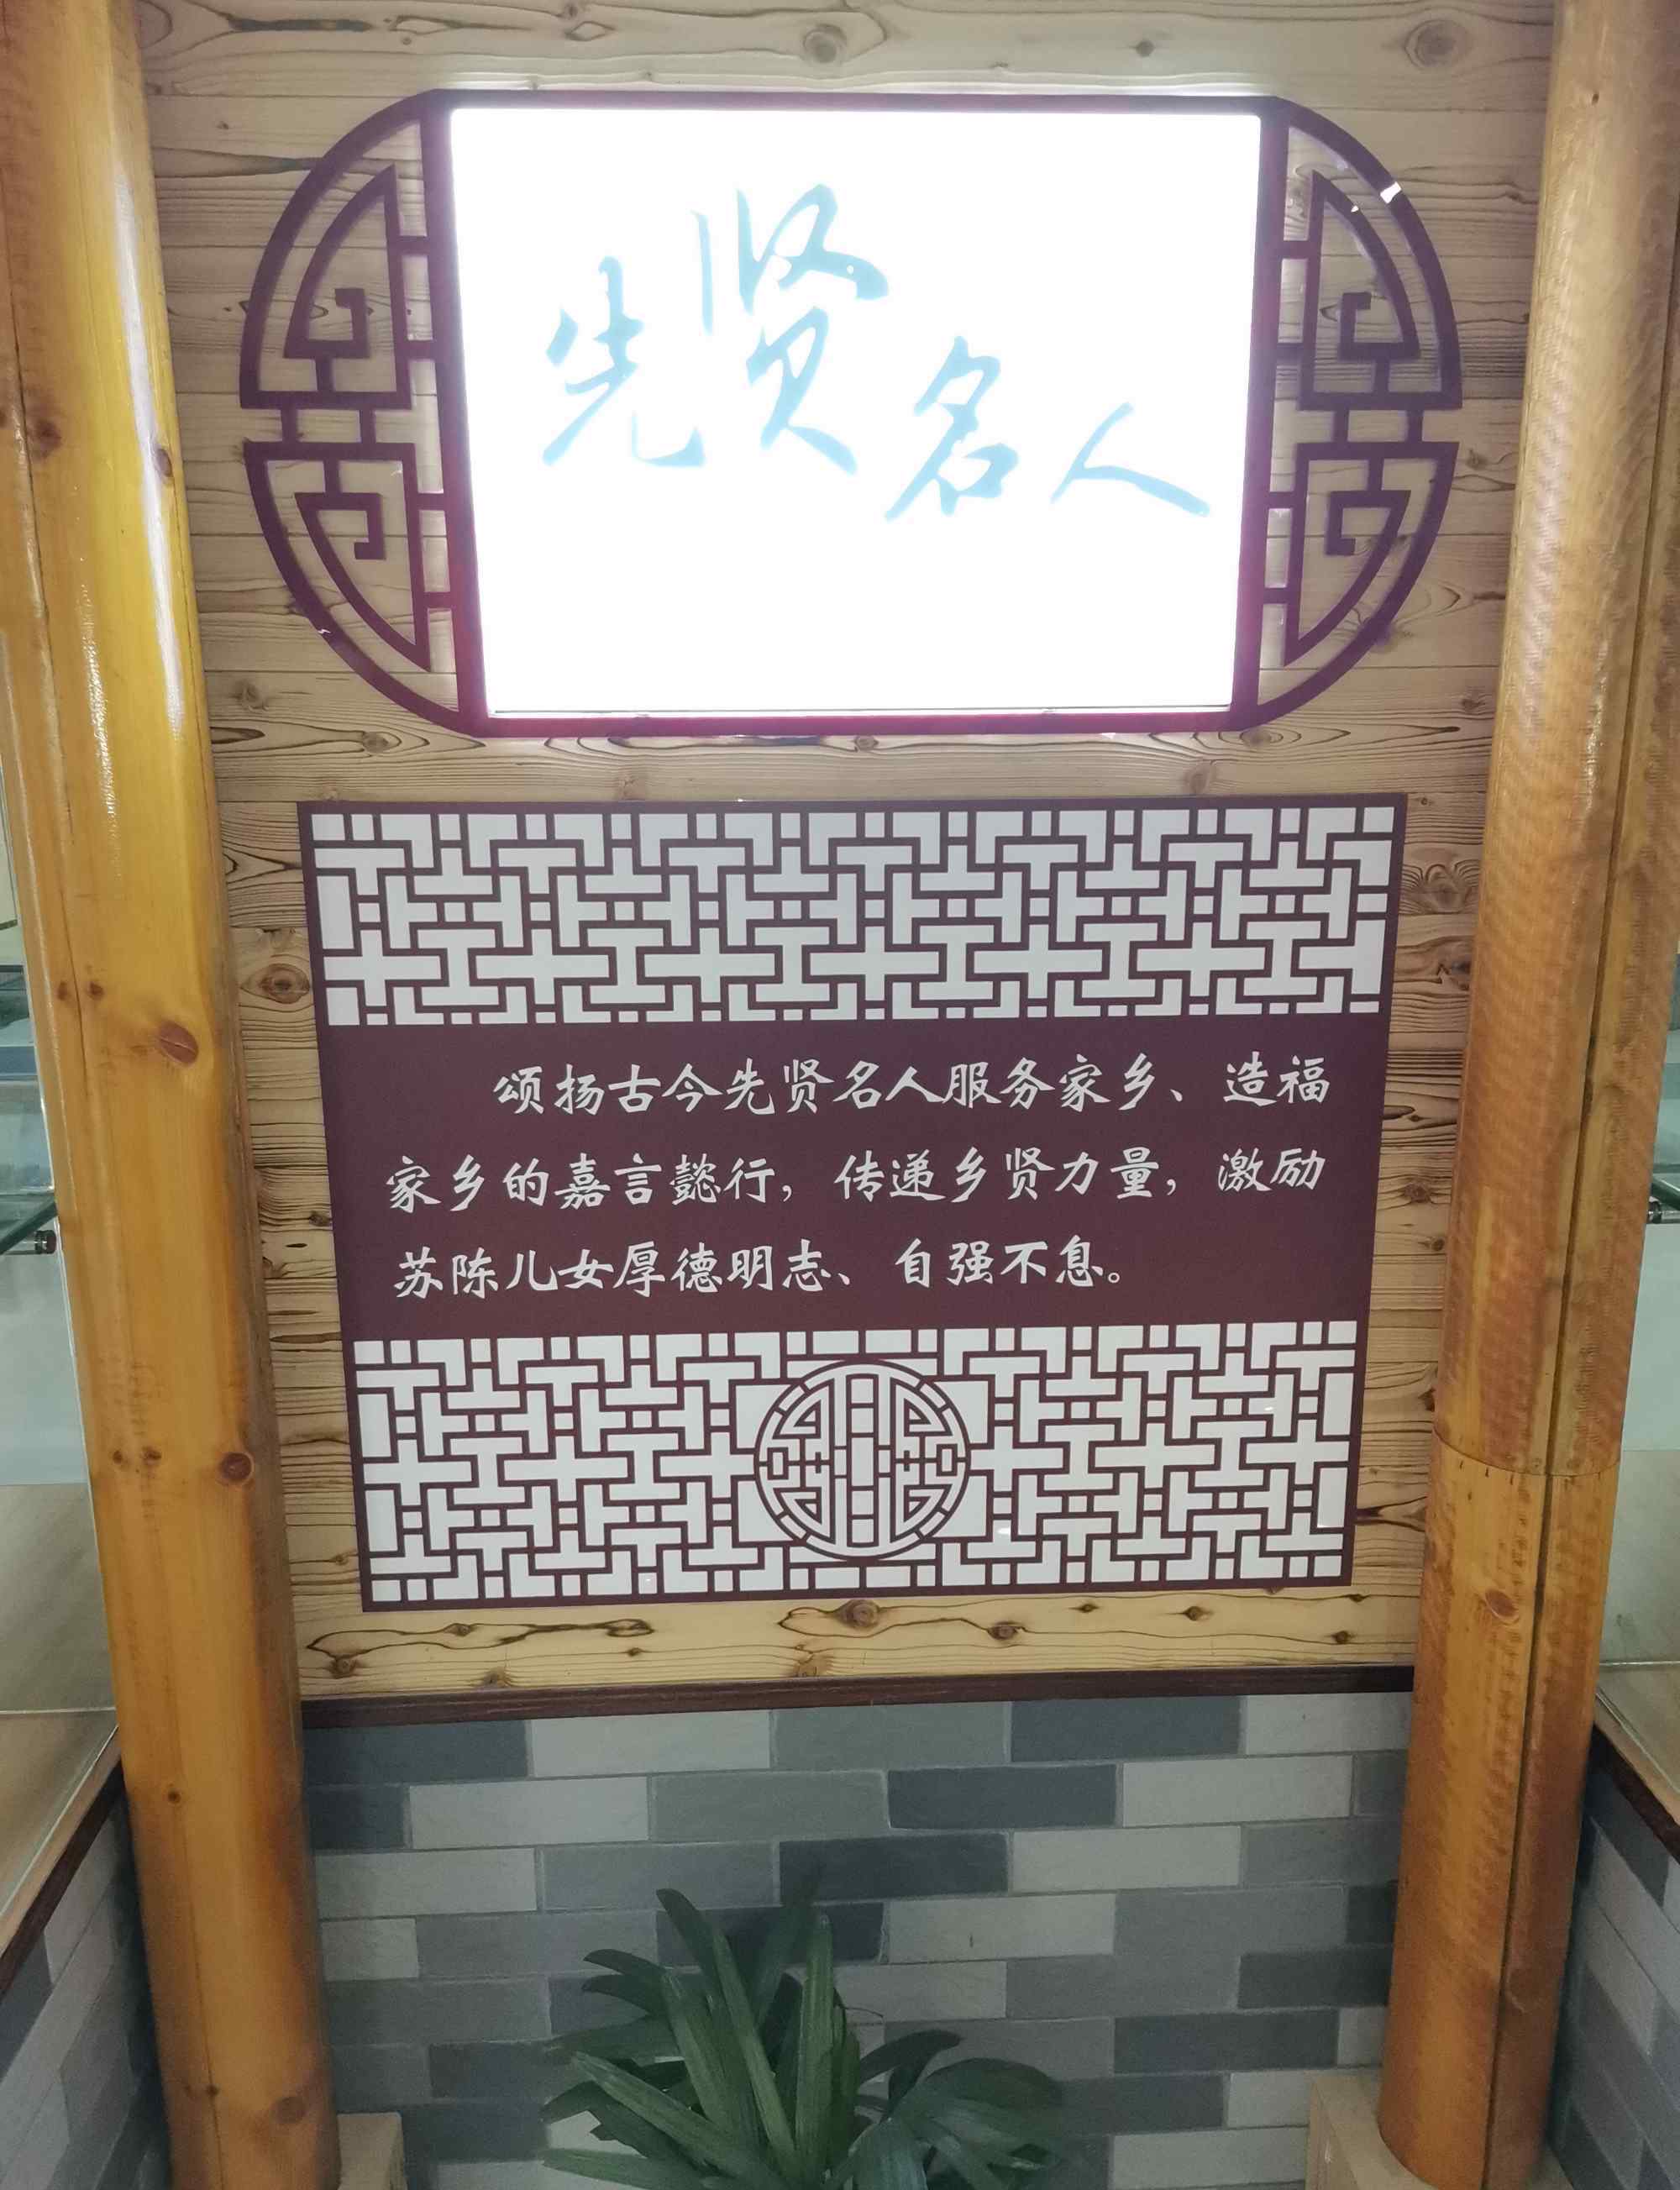 先贤名人
颂扬古今先贤名人服务家乡、造福
家乡的嘉言懿行，传递乡贤力量，激励
苏陈儿女厚德明志、自强不息。